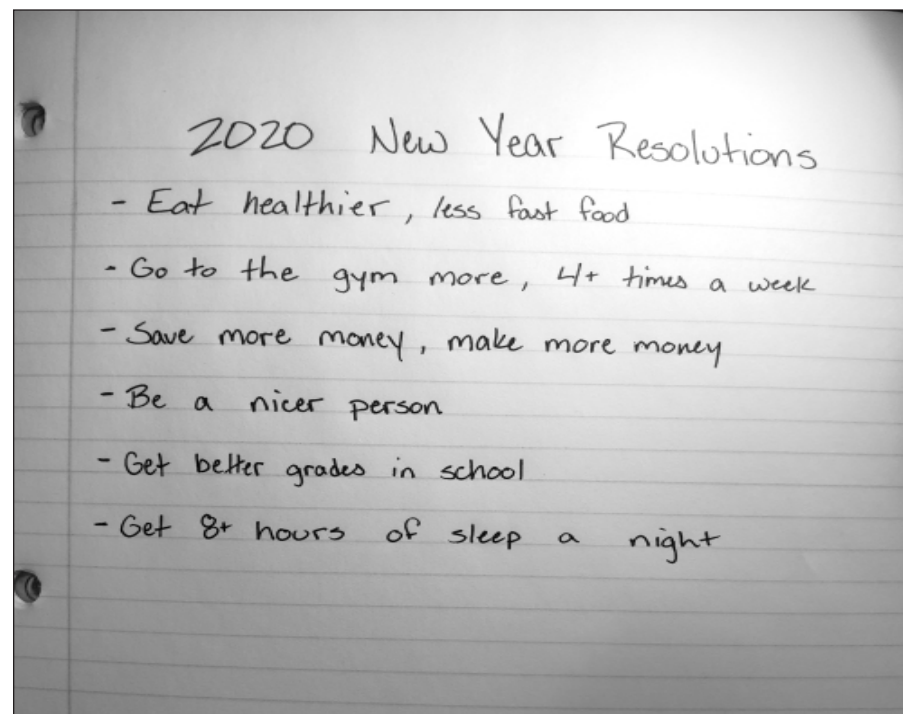 2020 New Year Resolutions
- Eat healthier, less fast food
- Go to the gym more, 4+ times a week
- Save more money, make more money
- Be a nicer person
- Get better grades in school
- Get 8+ hours of sleep a night